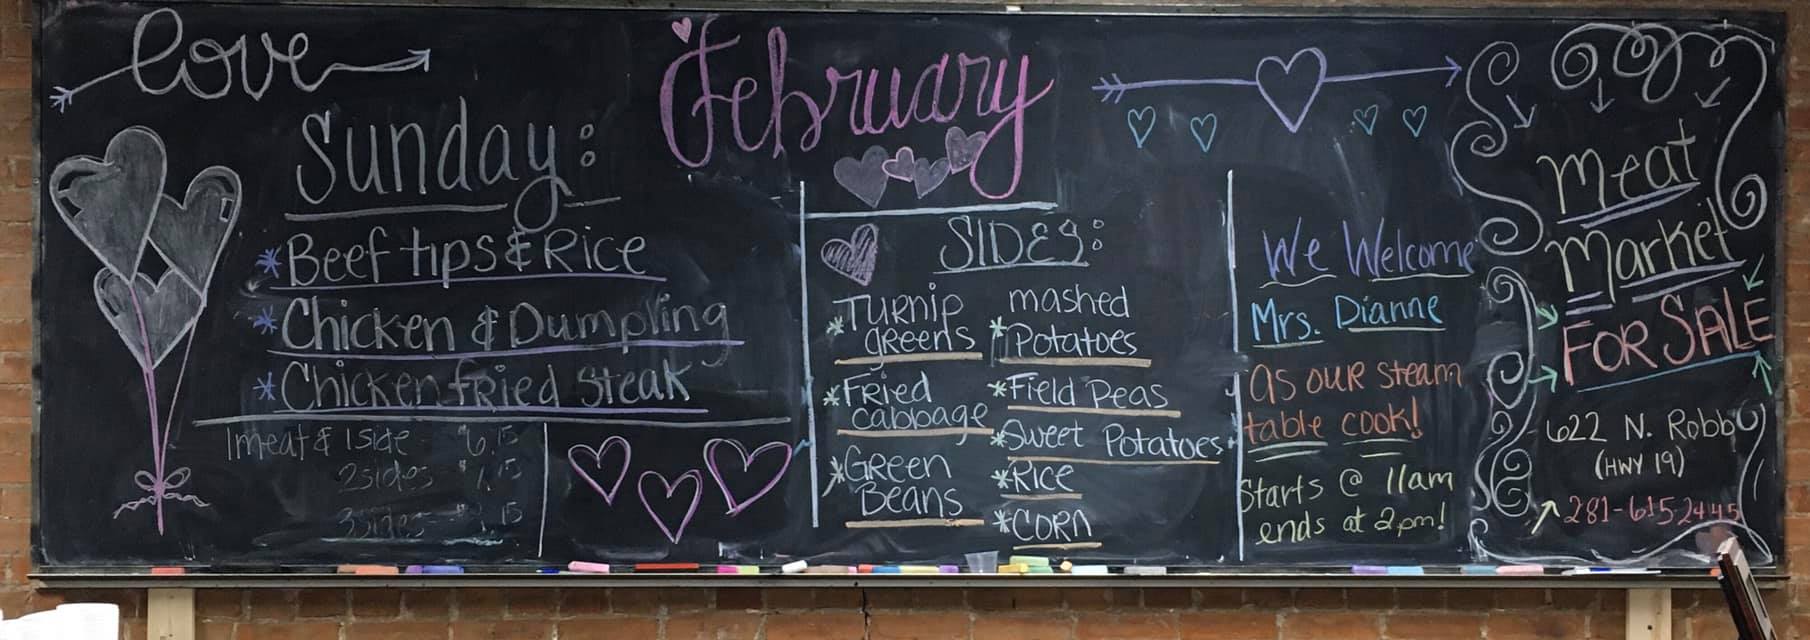 love
February
Sunday:
* Beef tips & Rice
* Chicken & Dumpling
* Chicken fried Steak
1 meat & 1 side - $6.15
2 sides
3 sides
SIDES:
* Turnip
greens
* Fried
cabbage
* Green
Beans
* mashed
Potatoes
* Field Peas
* Sweet Potatoes
* Rice
* CORN
We Welcome
Mrs. Dianne
as our steam
table cook!
Starts @ 11am
ends at 2pm!
Meat
Market
FOR SALE
622 N. Robb
(HWY 19)
281-615 2445